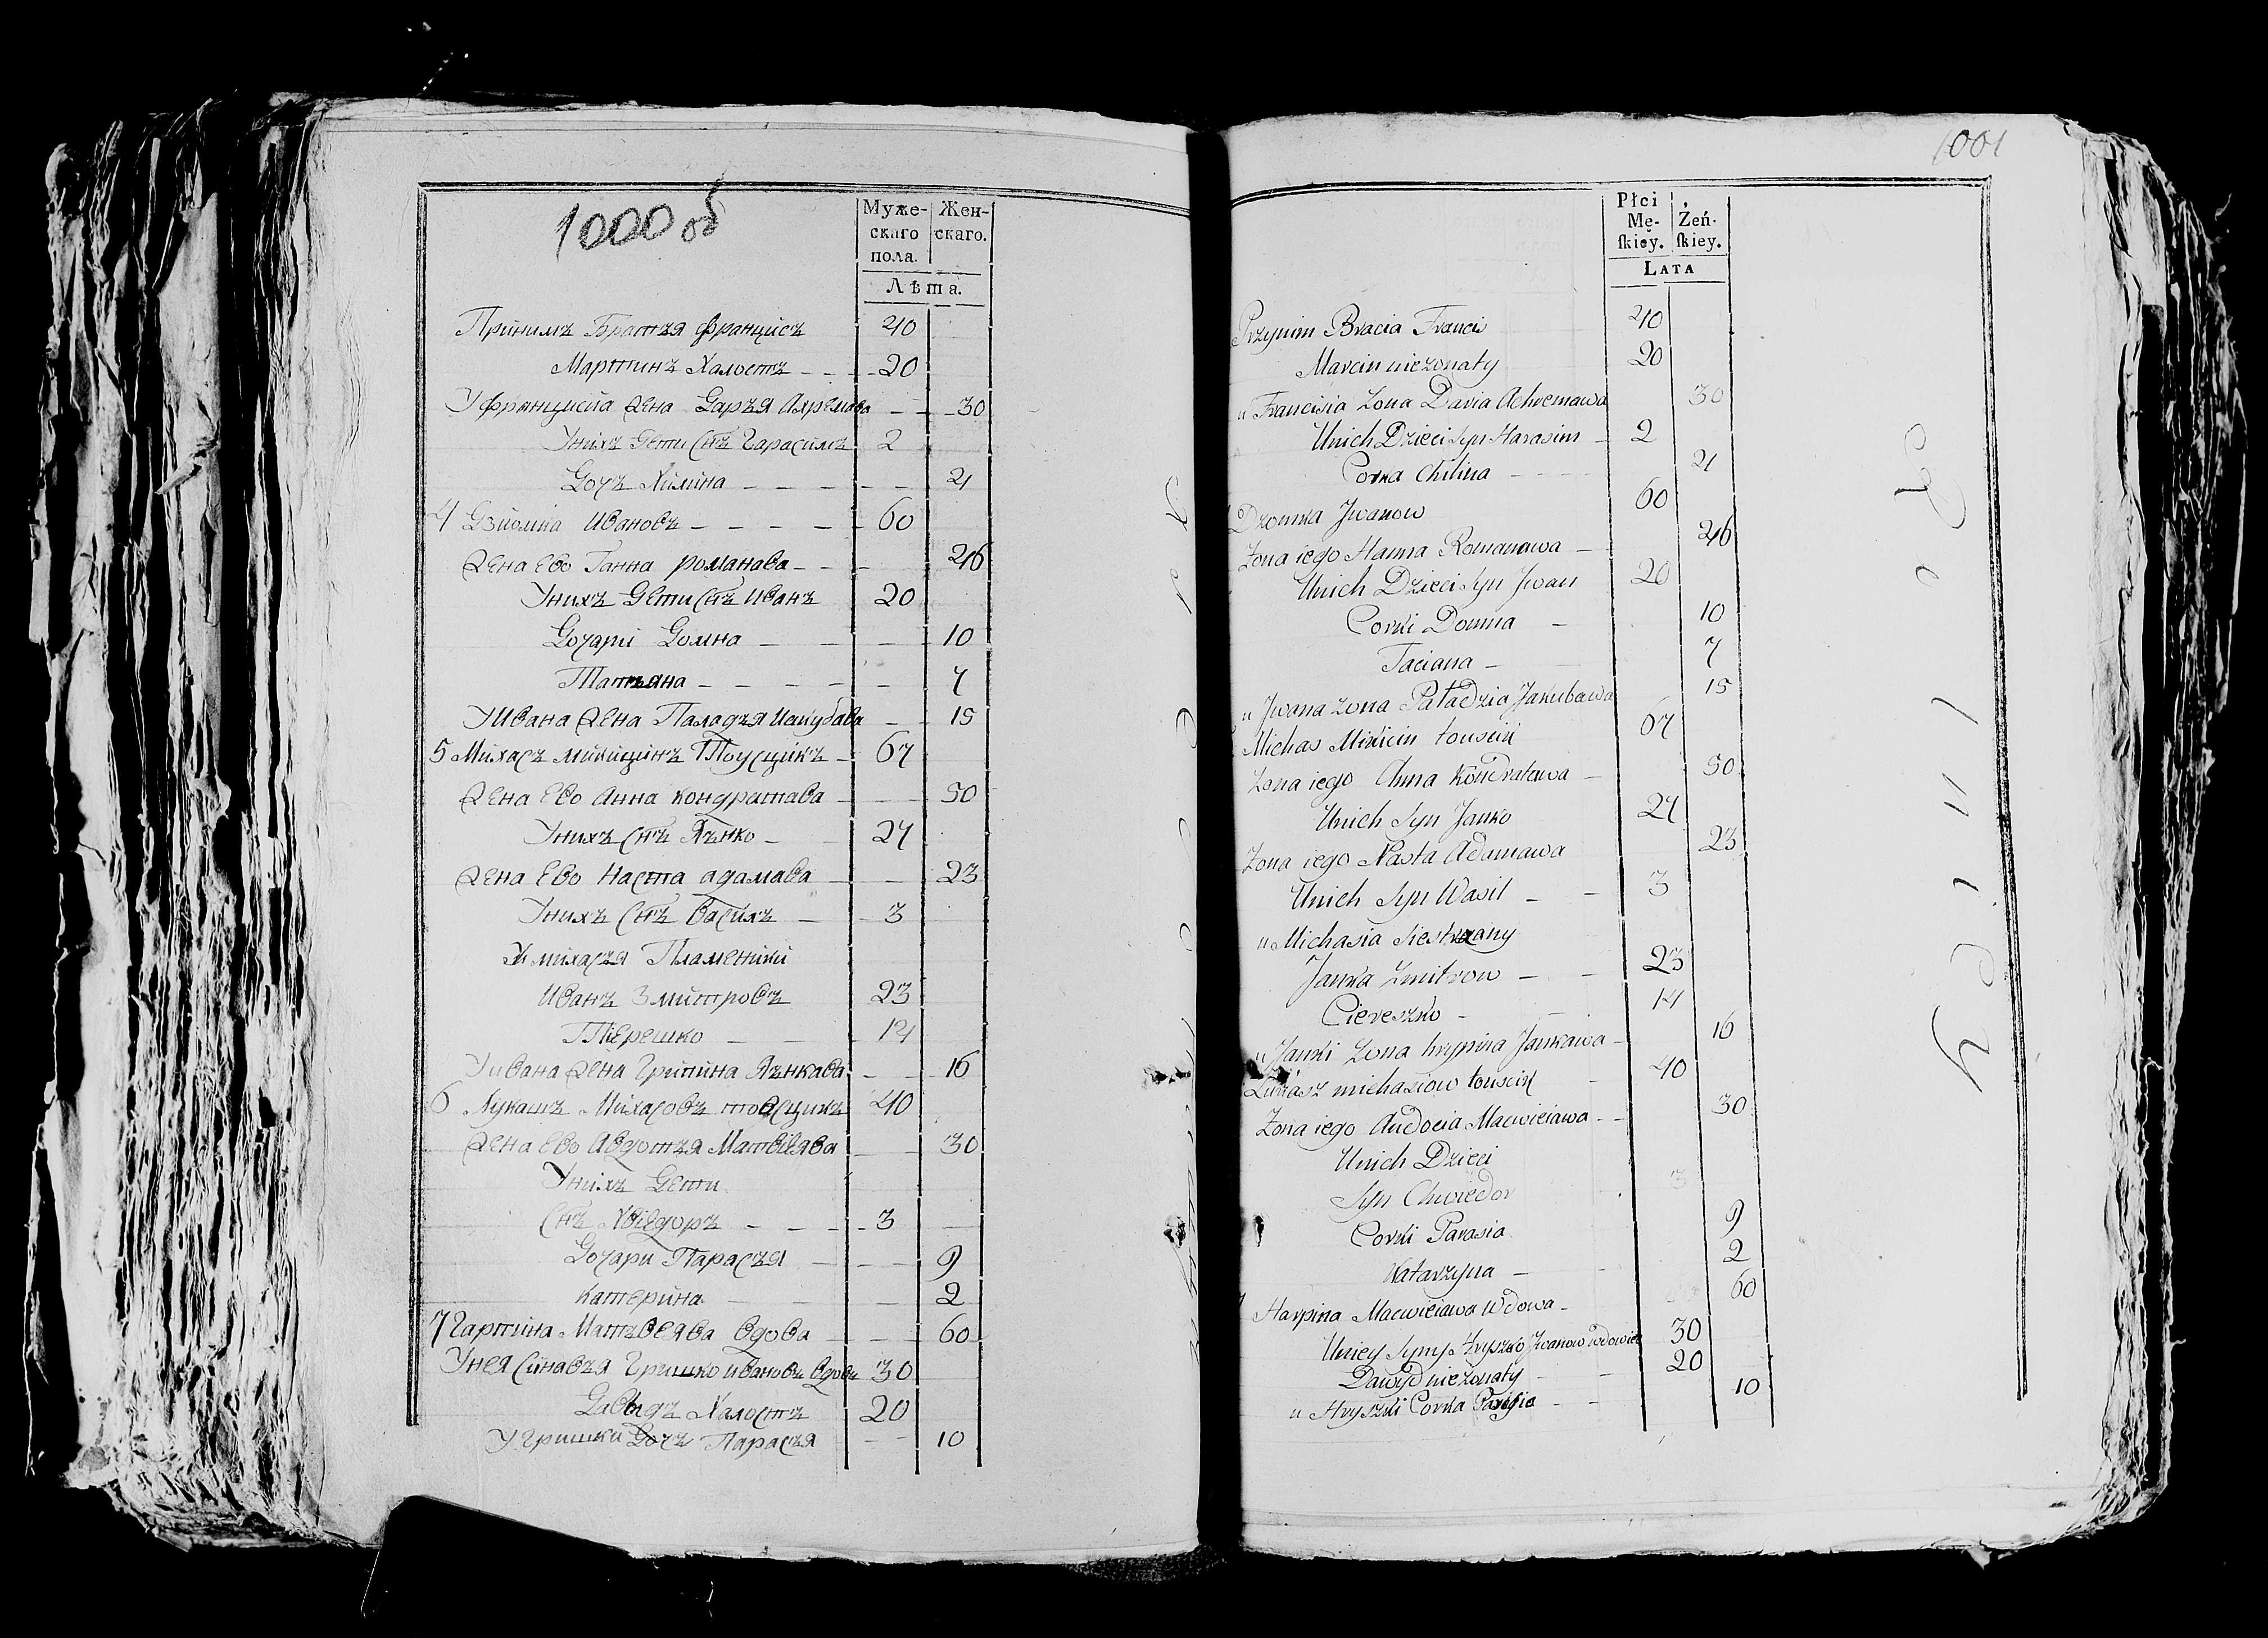 1000 об
Муже- Жен-
скаго скаго.
пола.
Лѣта.
Прйнимъ Братъя Францисъ 40
Мартинъ Халостъ 20
У Францисйа жена Даръя Ахремава 30
Унихъ Дети Снъ Гарасимъ 2
Дочъ Хилйна 21
4 Дзйомка Ивановъ 60
жена Ево Ганна Романава 46
Унихъ Дети Снъ Иванъ 20
Дочари Домна 10
Татьяна 7
У Ивана жена Паладзя Иакубава 15
5 Михасъ Микицинъ Тоусцикъ 67
жена Ево Анна Кондратава 50
Унихъ Снъ Янко 27
жена Ево Наста Адамава 23
Унихъ Снъ Василъ 3
У михася Пламеники
Иванъ Змитровъ 23
Терешко 14
У ивана жена Грипйна Янкава 16
6 Лукашъ Михасовъ товсцикъ 40
жена Ево Авдотъя Матвѣява 30
Унихъ Дети
Снъ Хвѣдоръ 3
Дочари Парасъя 9
Катерйна 2
7 Гарпина Матвеява Вдова 60
Унея Сйнавъя Гришко ивановъ Вдовъ 30
Давыдъ Халостъ 20
У Гришки Дочъ Парасъя 10
1001
Płci
Mę- Żeń-
ſkiey. ſkiey.
Lata
Przynim Bracia Francis 40
Marcin niezonaty 20
u Francisia Zona Daria Achremawa 30
Unich Dzieci Syn Harasim 2
Corka Chilina 21
Dzomka Jwanow 60
Zona iego Hanna Romanawa 46
Unich Dzieci Syn Jwan 20
Corki Domna 10
Taciana 7
u Jwana zona Paładzia Jakubawa 15
Michas Mikicin touscik 67
Zona iego Anna Kondratawa 50
Unich Syn Janko 27
Zona iego Nasta Adamawa 23
Unich Syn Wasil 3
u Michasia siestrzany
Janka Zmitrow 23
Ciereszko 14
u Janki Zona hrypina Jankawa 16
Lukasz michasiow touscik 40
Zona iego Audocia Macwieiawa 30
Unich Dzieci
Syn Chwiedor 3
Corki Parasia 9
Katarzyna 2
Harpina Macwieiawa Wdowa 60
Uniey Syny Hryszko Jwanow wdowiec 30
Dawyd niezonaty 20
u Hryszki Corka Parasia 10